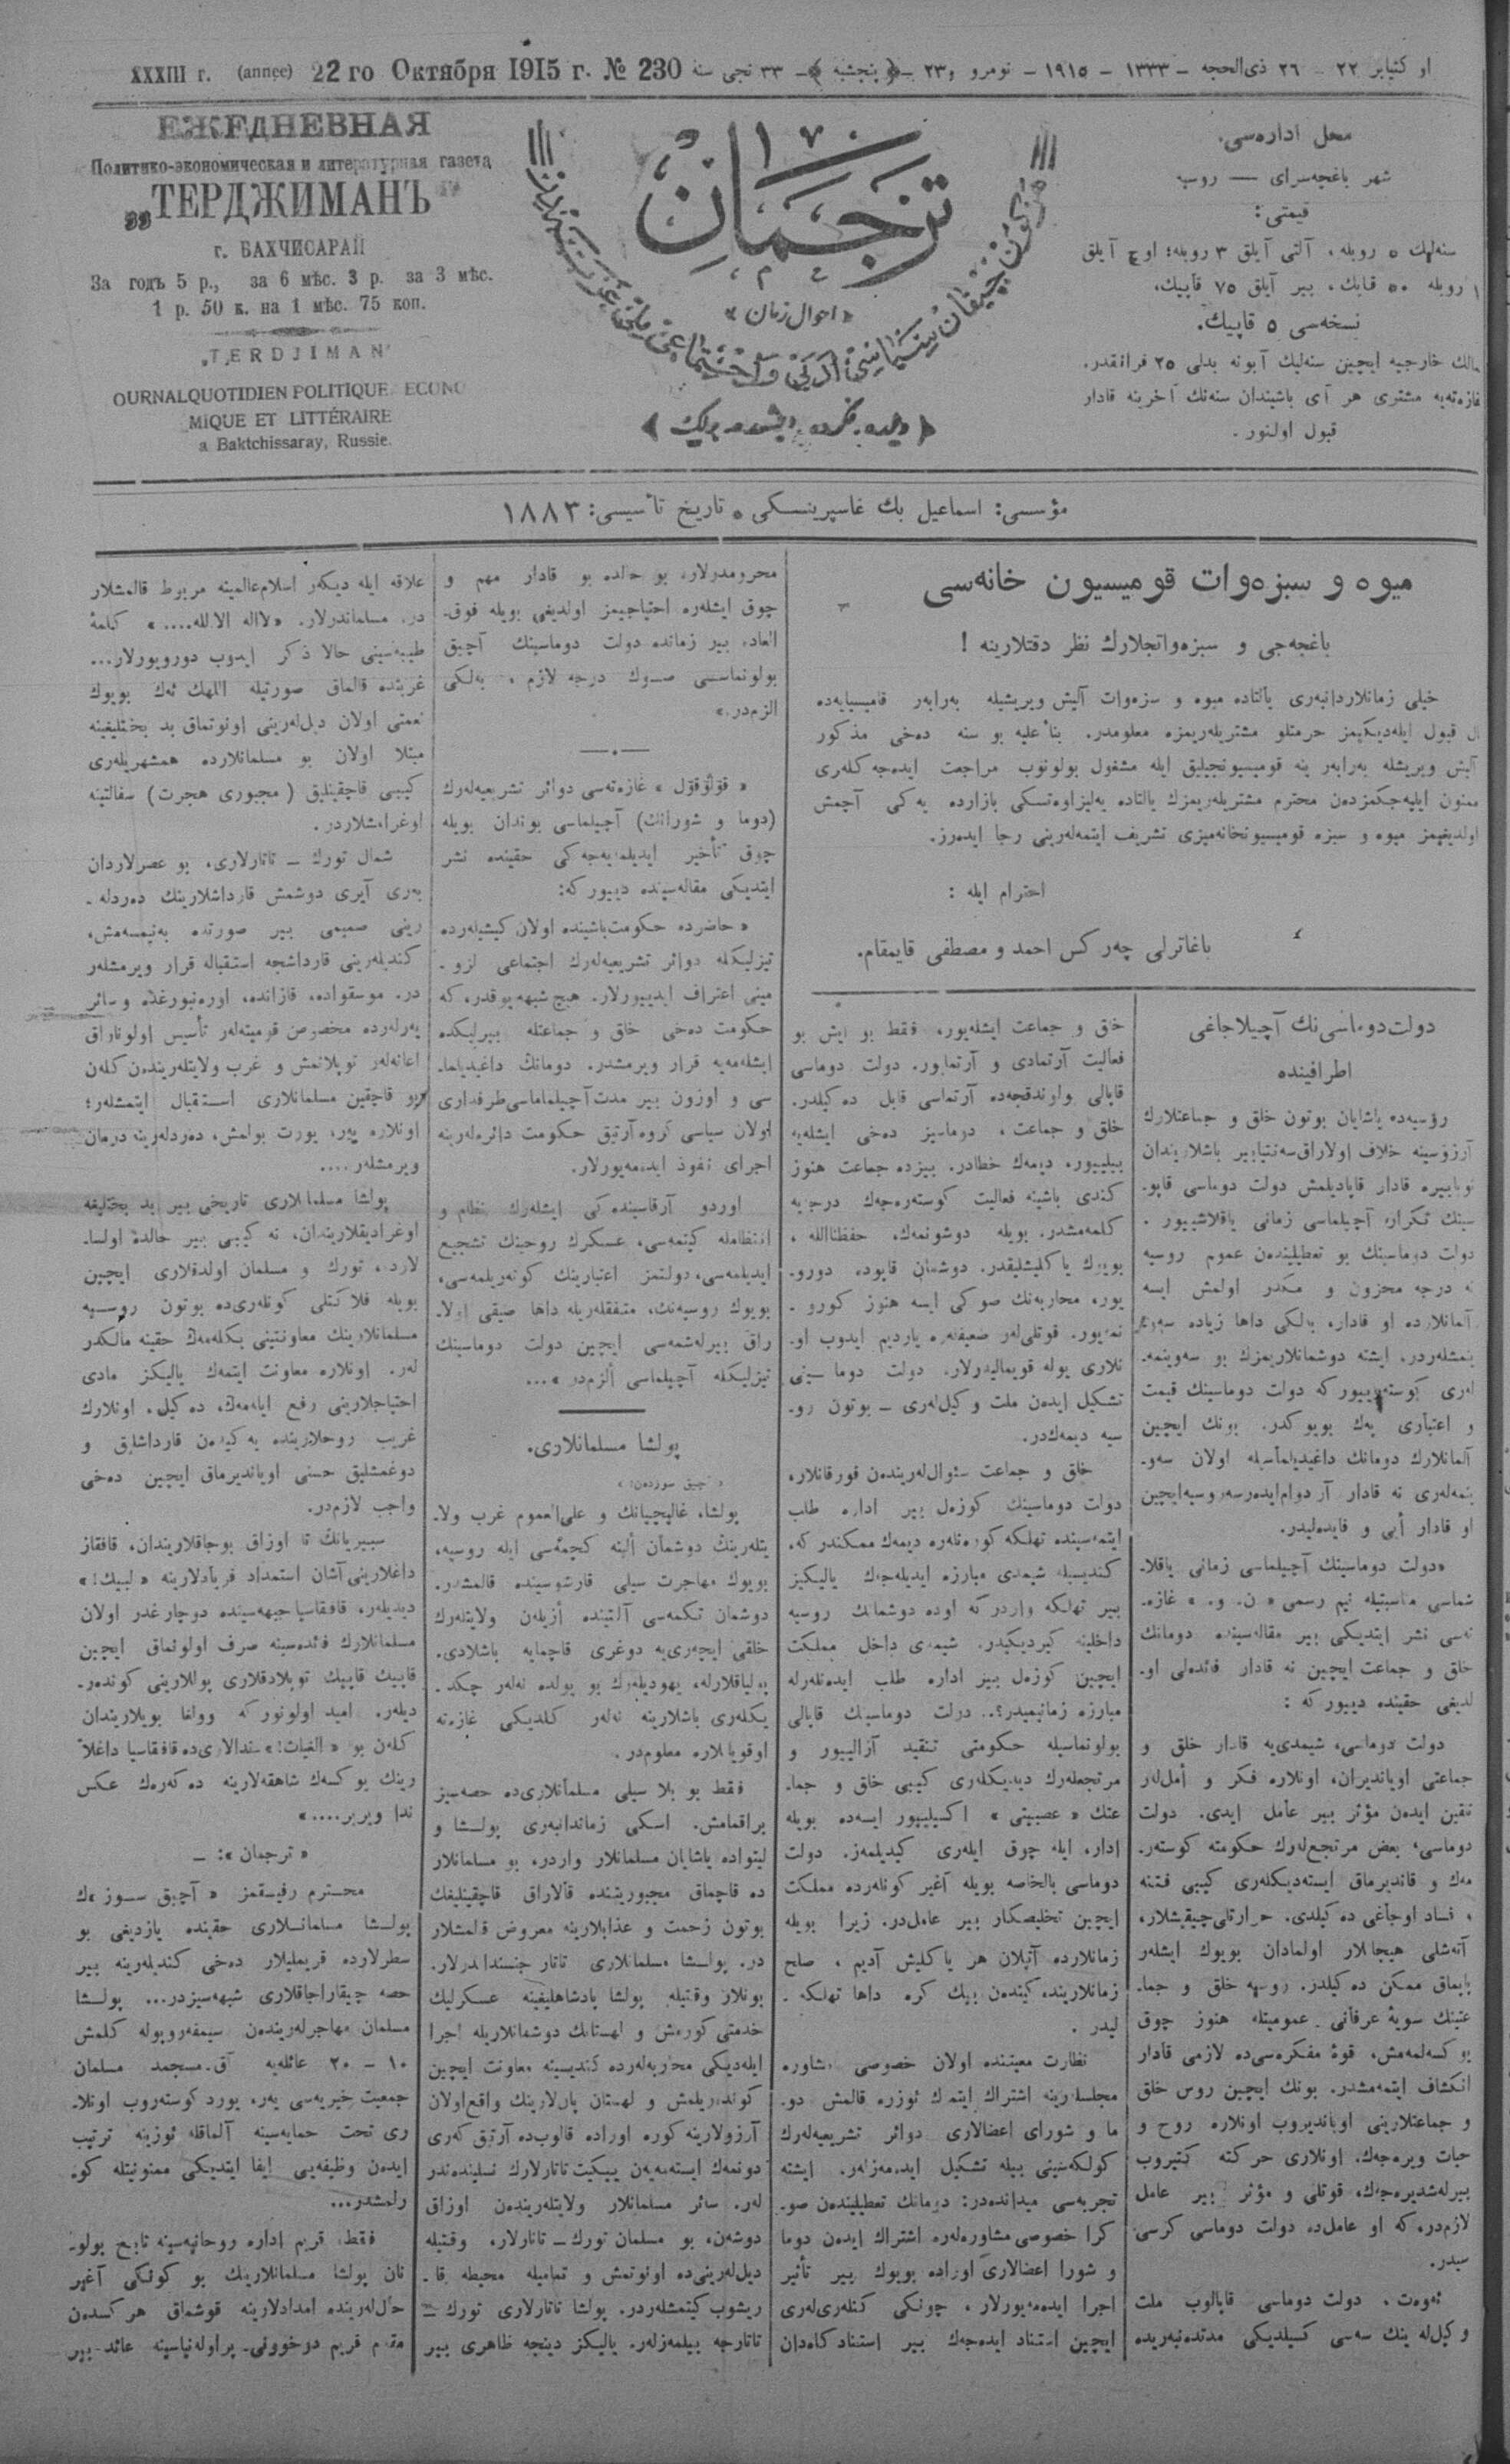 XXXIII г. (année) 22 го Октября 1915 г. № 230
او كتيابر ٢٢ - ٢٦ ذى‌الحجه - ١٣٣٣ - ١٩١٥ - نومرو ٢٣٠ -﴿ پنجشنبه ﴾- ٣٣ نجى سنه
ЕЖЕДНЕВНАЯ
Политико-экономическая и литературная газета
„ТЕРДЖИМАНЪ“
г. БАХЧИСАРАЙ
За годъ 5 р., за 6 мѣс. 3 р. за 3 мѣс.
1 р. 50 к. на 1 мѣс. 75 коп.
„TERDJIMAN“
OURNAL QUOTIDIEN POLITIQUE ECONO
MIQUE ET LITTÉRAIRE
a Baktchissaray, Russie.
ترجمان
« احوال زمان »
« دیلده، فكرده، ایشده بیرلك »
محل اداره‌سى.
شهر باغچه‌سراى — روسیه
قیمتى:
سنه‌لیك ٥ روبله، آلتى آیلق ٣ روبله؛ اوچ آیلق
١ روبله ٥٠ قاپك، بیر آیلق ٧٥ قاپیك،
نسخه‌سى ٥ قاپیك.
مالك خارجیه ایچین سنه‌لیك آبونه بدلى ٢٥ فرانقدر.
غازه‌ته‌یه مشترى هر آى باشیندان سنه‌نك آخرینه قادار
قبول اولنور.
مؤسسى: اسماعیل بك غاسپرینسكى ٭ تاریخ تأسیسى: ١٨٨٣
میوه و سبزه‌وات قومیسیون خانه‌سى
باغچه‌جى و سبزه‌واتجلارك نظر دقتلارینه !
خیلى زمانلاردانبه‌رى یالتاده میوه و سزه‌وات آلیش ویریشیله به‌رابه‌ر قامیسیایه‌ده
ال قبول ایله‌دیكیمز حرمتلو مشتریله‌ریمزه معلومدر. بنأ علیه بو سنه ده‌خى مذكور
آلیش ویریشله به‌رابه‌ر ینه قومیسیونجیلیق ایله مشغول بولونوب مراجعت ایده‌جه‌كله‌رى
ممنون ایلیه‌جكمزده‌ن محترم مشتریله‌ریمزك یالتاده یه‌لیزاوه‌تسكى بازارده یه‌كى آچمش
اولدیغیمز میوه و سبزه قومیسیونخانه‌میزى تشریف ایتمه‌له‌رینى رجا ایده‌رز.
احترام ایله :
باغاترلى چه‌ركس احمد و مصطفى قایمقام.
دولت دوماسى‌نك آچیلاجاغى
اطرافینده
رؤسیه‌ده یاشایان بوتون خلق و جماعتلارك
آرزوسینه خلاف اولاراق سه‌نتیابیر باشلاریندان
نویابیره قادار قاپادیلمش دولت دوماسى قاپو-
سینك تكرار آچیلماسى زمانى یاقلاشییور.
دولت دوماسینك بو تعطیلیندەن عموم روسیه
نه درجه محزون و مكدر اولمش ایسه
آلمانلارده او قادار، به‌لكى داها زیاده
ینمشله‌ردر. ایشته دوشمانلاریمزك بو سه‌وینمه-
له‌رى كوسته‌رییور كه دولت دوماسینك قیمت
و اعتبارى په‌ك بویوكدر. بونك ایچین
آلمانلارك دومانك داغیدیلماسیله اولان سه‌و-
ینمه‌له‌رى نه قادار آز دوام ایده‌رسه روسیه ایچین
او قادار أیى و فایده‌لیدر.
«دولت دوماسینك آچیلماسى زمانى یاقلا-
شماسى مناسبتیله نیم رسمى « ن. و. » غازه-
ته‌سى نشر ایتدیكى بیر مقاله‌سینده دومانك
خلق و جماعت ایچین نه قادار فائده‌لى او-
لدیغى حقینده دییور كه :
دولت دوماسى، شیمدى‌یه قادار خلق و
جماعتى اویاندیران، اونلاره فكر و أمل‌له‌ر
تلقین ایدەن مؤثر بیر عامل ایدى. دولت
دوماسى، بعض مرتجع‌له‌رك حكومته كوسته‌ر-
مه‌ك و قاندیرماق ایسته‌دیكله‌رى كیبى فتنه
، فساد اوجاغى ده‌كیلدى. حرارتلى چیقیشلار،
آته‌شلى هیجانلار اولمادان بویوك ایشله‌ر
یاپماق ممكن ده‌كیلدر. روسیه خلق و جما-
عتینك سویهٔ عرفانى عمومیتله هنوز چوق
یوكسه‌لمه‌مش، قوهٔ مفكره‌سى‌ده لازمى قادار
انكشاف ایتمه‌مشدر. بونك ایچین روس خلق
و جماعتلارینى اویاندیروب اونلاره روح و
حیات ویره‌جه‌ك، اونلارى حركته كتیروب
بیرله‌شدیره‌جه‌ك، قوتلى و مؤثر بیر عامل
لازم‌در، كه او عامل‌ده دولت دوماسى كرسى-
سیدر.
ئه‌وه‌ت، دولت دوماسى قاپالوب ملت
و كیل‌له‌ینك سه‌سى كسیلدیكى مدتده‌نبه‌ریده
خلق و جماعت ایشله‌یور، فقط بو ایش بو
فعالیت آرتمادى و آرتمایور. دولت دوماسى
قاپالى بولوندقجه‌ده آرتماسى قابل ده‌كیلدر.
خلق و جماعت، دوماسیز ده‌خى ایشله‌یه
بیلییور، دیمه‌ك خطادر. بیزده جماعت هنوز
كندى باشینه فعالیت كوسته‌ره‌جه‌ك درجه‌یه
كلمه‌مشدر. بویله دوشونمه‌ك، حفظناالله،
بویوك یاكلیشلیقدر. دوشمان قاپوده دورو-
یور، محاربه‌نك صوكى ایسه هنوز كورو-
نمه‌یور. قوتلى‌له‌ر ضعیفله‌ره یاردیم ایدوب او-
نلارى یوله قویمالیدرلار. دولت دوماسینى
تشكیل ایدەن ملت و كیل‌له‌رى - بوتون رو-
سیه دیمه‌ك‌در.
خلق و جماعت سئوال‌له‌ریندەن قورقانلاره
دولت دوماسینك كوزه‌ل بیر اداره طلب
ایتمه‌سینده تهلكه كوره‌نله‌ره دیمه‌ك ممكندر كه،
كندیسیله شیمدى مبارزه ایدیله‌جه‌ك یالیكیز
بیر تهلكه واردر كه اوده دوشمانك روسیه
داخلینه كیردیكیدر. شیمدى داخل مملكت
ایچین كوزه‌ل بیر اداره طلب ایده‌نله‌رله
مبارزه زمانیمیدر؟.. دولت دوماسینك قاپالى
بولونماسیله حكومتى تنقید آزالییور و
مرتجعله‌رك دیدیكله‌رى كیبى خلق و جما-
عتك « عصبیتى » اكسیلییور ایسه‌ده بویله
اداره ایله چوق ایله‌رى كیدیلمه‌ز. دولت
دوماسى بالخاصه بویله آغیر كونله‌رده مملكت
ایچین تخلیصكار بیر عامل‌در. زیرا بویله
زمانلارده آتیلان هر یاكلیش آدیم، صلح
زمانلارینده كیندەن بیك كره داها تهلكه-
لیدر.
نظارت معیتنده اولان خصوصى مشاوره
مجلسله‌رینه اشتراك ایتمه‌ك ئوزره قالمش دو-
ما و شوراى اعضالارى دوائر تشریعیه‌له‌رك
كولكه‌سینى بیله تشكیل ایده‌مه‌زله‌ر. ایشته
تجربه‌سى میدانده‌در: دومانك تعطیلیندەن صو-
كرا خصوصى مشاوره‌له‌ره اشتراك ایدەن دوما
و شورا اعضالارى اوراده بویوك بیر تأثیر
اجرا ایده‌مه‌یورلار، چونكى كنله‌رى‌له‌رى
ایچین استناد ایده‌جه‌ك بیر استنادكاه‌دان
محرومدرلار، بو حالده بو قادار مهم و
چوق ایشله‌ره احتیاجیمز اولدیغى بویله فوق-
العاده بیر زمانده دولت دوماسینك آچیق
بولونماسى صوك درجه لازم، به‌لكى
الزم‌در.»
« قولوقول » غازه‌ته‌سى دوائر تشریعیه‌له‌رك
(دوما و شورانك) آچیلماسى بوندان بویله
چوق تأخیر ایدیلمه‌یه‌جه‌كى حقینده نشر
ایتدیكى مقاله‌سینده دییور كه:
« حاضرده حكومت باشینده اولان كیشیله‌رده
تیزلیكله دوائر تشریعیه‌له‌رك اجتماعى لزو-
مینى اعتراف ایدییورلار. هیچ شبهه یوقدر، كه
حكومت ده‌خى خلق و جماعتله بیرلیكده
ایشله‌مه‌یه قرار ویرمشدر. دومانك داغیدیلما-
سى و اوزون بیر مدت آچیلماماسى طرفدارى
اولان سیاسى كروه آرتیق حكومت دائره‌له‌رینه
اجراى نفوذ ایده‌مه‌یورلار.
اوردو آرقاسینده‌كى ایشله‌رك نظام و
انتظامله كیتمه‌سى، عسكرك روحینك تشجیع
ایدیلمه‌سى، دولتمز اعتبارینك كوته‌ریلمه‌سى،
بویوك روسیه‌نك، متفقله‌ریله داها صیقى اولا-
راق بیرله‌شمه‌سى ایچین دولت دوماسینك
تیزلیكله آچیلماسى ألزم‌در »...
پولشا مسلمانلارى.
« آچیق سوزدەن: »
پولشا، غالیچیانك و على‌العموم غرب ولا-
یتله‌رینك دوشمان ألینه كچمه‌سى ایله روسیه،
بویوك مهاجرت سیلى قارشوسینده قالمشدر.
دوشمان تكمه‌سى آلتینده أزیله‌ن ولایتله‌رك
خلقى ایچه‌رى‌یه دوغرى قاچمایه باشلادى.
پولیاقلارله، یهودیله‌رك بو یولده نه‌له‌ر چكد-
یكله‌رى باشلارینه نه‌له‌ر كلدیكى غازه‌ته
اوقویانلاره معلوم‌در.
فقط بو بلا سیلى مسلمانلارى‌ده حصه‌سیز
براقمامش. اسكى زماندانبه‌رى پولشا و
لیتواده یاشایان مسلمانلار واردر، بو مسلمانلار
ده قاچماق مجبوریتینده قالاراق قاچقینلیغك
بوتون زحمت و عذابلارینه معروض قالمشلار
در. پولشا مسلمانلارى تاتار جنسندندرلار.
بونلار وقتیله پولشا پادشاهلیغینه عسكرلیك
خدمتى كورمش و لهستانك دوشمانلاریله اجرا
ایله‌دیكى محاربه‌له‌رده كندیسینه معاونت ایچین
كوندریلمش و لهستان یارلارینك واقع اولان
آرزولارینه كوره اوراده قالوب‌ده آرتیق كه‌رى
دونمه‌ك ایسته‌مه‌یەن ییكیت تاتارلارك نسلیندەندر
له‌ر. سائر مسلمانلار ولایتله‌ریندەن اوزاق
دوشەن، بو مسلمان تورك - تاتارلار، وقتیله
دیل‌له‌رینى‌ده اونوتمش و تمامیله محیطه قا-
ریشوب كیتمشله‌ردر. پولشا تاتارلارى تورك -
تاتارجه بیلمه‌زله‌ر. یالیكز دینجه ظاهرى بیر
علاقه ایله دیكه‌ر اسلام عالمینه مربوط قالمشلار
در. مسلماندرلار. «لااله الاالله....» كلمهٔ
طیبه‌سینى حالا ذكر ایدوب دورویورلار...
غربتده قالماق صورتیله اللهك ئه‌ك بویوك
نعمتى اولان دیل‌له‌رینى اونوتماق بد بختلیغینه
مبتلا اولان بو مسلمانلارده همشهریله‌رى
كیبى قاچقینلیق ( مجبورى هجرت) سفالتینه
اوغرامشلاردر.
شمال تورك - تاتارلارى، بو عصرلاردان
به‌رى آیرى دوشمش قارداشلارینك ده‌ردله-
رینى صمیمى بیر صورتده به‌نیمسه‌مش،
كندیله‌رینى قارداشجه استقباله قرار ویرمشله‌ر
در. موسقواده، قازانده، اوره‌نبورغده و سائر
یه‌رله‌رده مخصوص قومیته‌له‌ر تأسیس اولوناراق
اعانه‌له‌ر توپلانمش و غرب ولایتله‌ریندەن كله‌ن
بو قاچقین مسلمانلارى استقبال ایتمشله‌ر؛
اونلاره یه‌ر، یورت بولمش، ده‌ردله‌رینه درمان
ویرمشله‌ر....
پولشا مسلمانلارى تاریخى بیر بد بختلیغه
اوغرادیقلاریندان، نه كیبى بیر حالده اولسا-
لارده، تورك و مسلمان اولدقلارى ایچین
بویله فلاكتلى كونله‌رى‌ده بوتون روسیه
مسلمانلارینك معاونتینى بكله‌مه‌ك حقینه مالكدر
له‌ر. اونلاره معاونت ایتمه‌ك یالیكز مادى
احتیاجلارینى رفع ایله‌مه‌ك، ده‌كیل، اونلارك
غریب روحلارینده یه‌كیدەن قارداشلیق و
دوغمشلیق حسى اویاندیرماق ایچین ده‌خى
واجب لازم‌در.
سیبریانك تا اوزاق بوجاقلاریندان، قافقاز
داغلارینى آشان استمداد فریادلارینه «لبیك!»
دیدیله‌ر، قافقاسیا جبهه‌سینده دوچار غدر اولان
مسلمانلارك فائده‌سینه صرف اولونماق ایچین
قاپیك قاپیك توپلادقلارى پوللارینى كونده‌ر-
دیله‌ر. امید اولونور كه وولغا بویلاریندان
كله‌ن بو « الغیاث!» ندالارى‌ده قافقاسیا داغلا-
رینك یوكسه‌ك شاهقه‌لارینه ده‌كه‌ره‌ك عكس
ندا ویریر....»
« ترجمان »: -
محترم رفیقمز « آچیق سوز »ك
پولشا مسلمانلارى حقینده یازدیغى بو
سطرلارده قریملیلار ده‌خى كندیله‌رینه بیر
حصه چیقاراجاقلارى شبهه‌سیزدر... پولشا
مسلمان مهاجرله‌ریندەن سیمفه‌روپوله كلمش
١٠ - ٢٠ عائله‌یه آق-مسجد مسلمان
جمعیت خیریه‌سى یه‌ر، یورد كوسته‌روب اونلا-
رى تحت حمایه‌سینه آلماقله ئوزینه ترتیب
ایدەن وظیفه‌یى ایفا ایتدیكى ممنونیتله كو-
رلمشدر...
فقط، قریم اداره روحانیه‌سینه تابع بولو-
نان پولشا مسلمانلارینك بو كونكى آغیر
حال‌له‌رینده امدادلارینه قوشماق هر كسدەن
مقدم قریم دوخوونى-پراوله‌نیاسینه عائد بیر